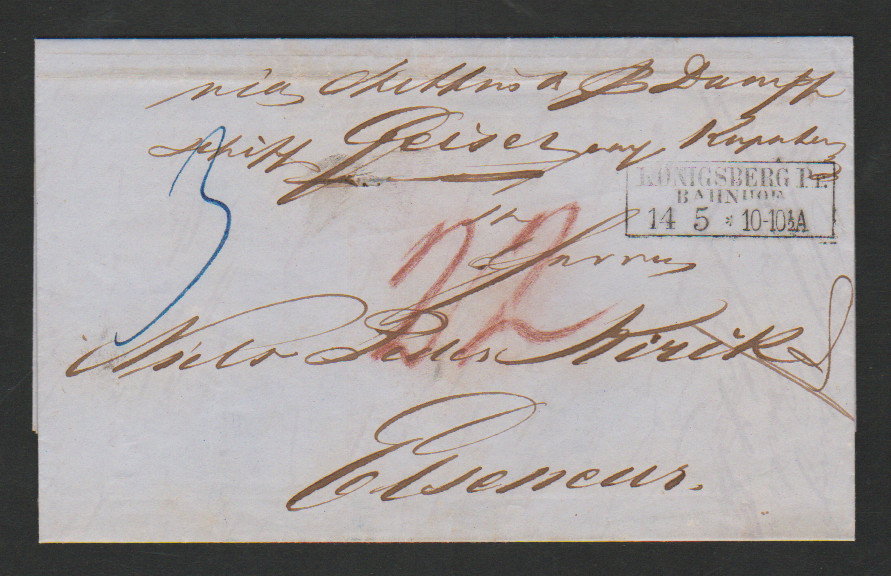 via Stettin & pr Dampf
schiff Geiser
KÖNIGSBERG PR.
BAHNHOF
14 5 * 10-10½A
3
22
Herren
Niels Peder Kirck
Elseneur.